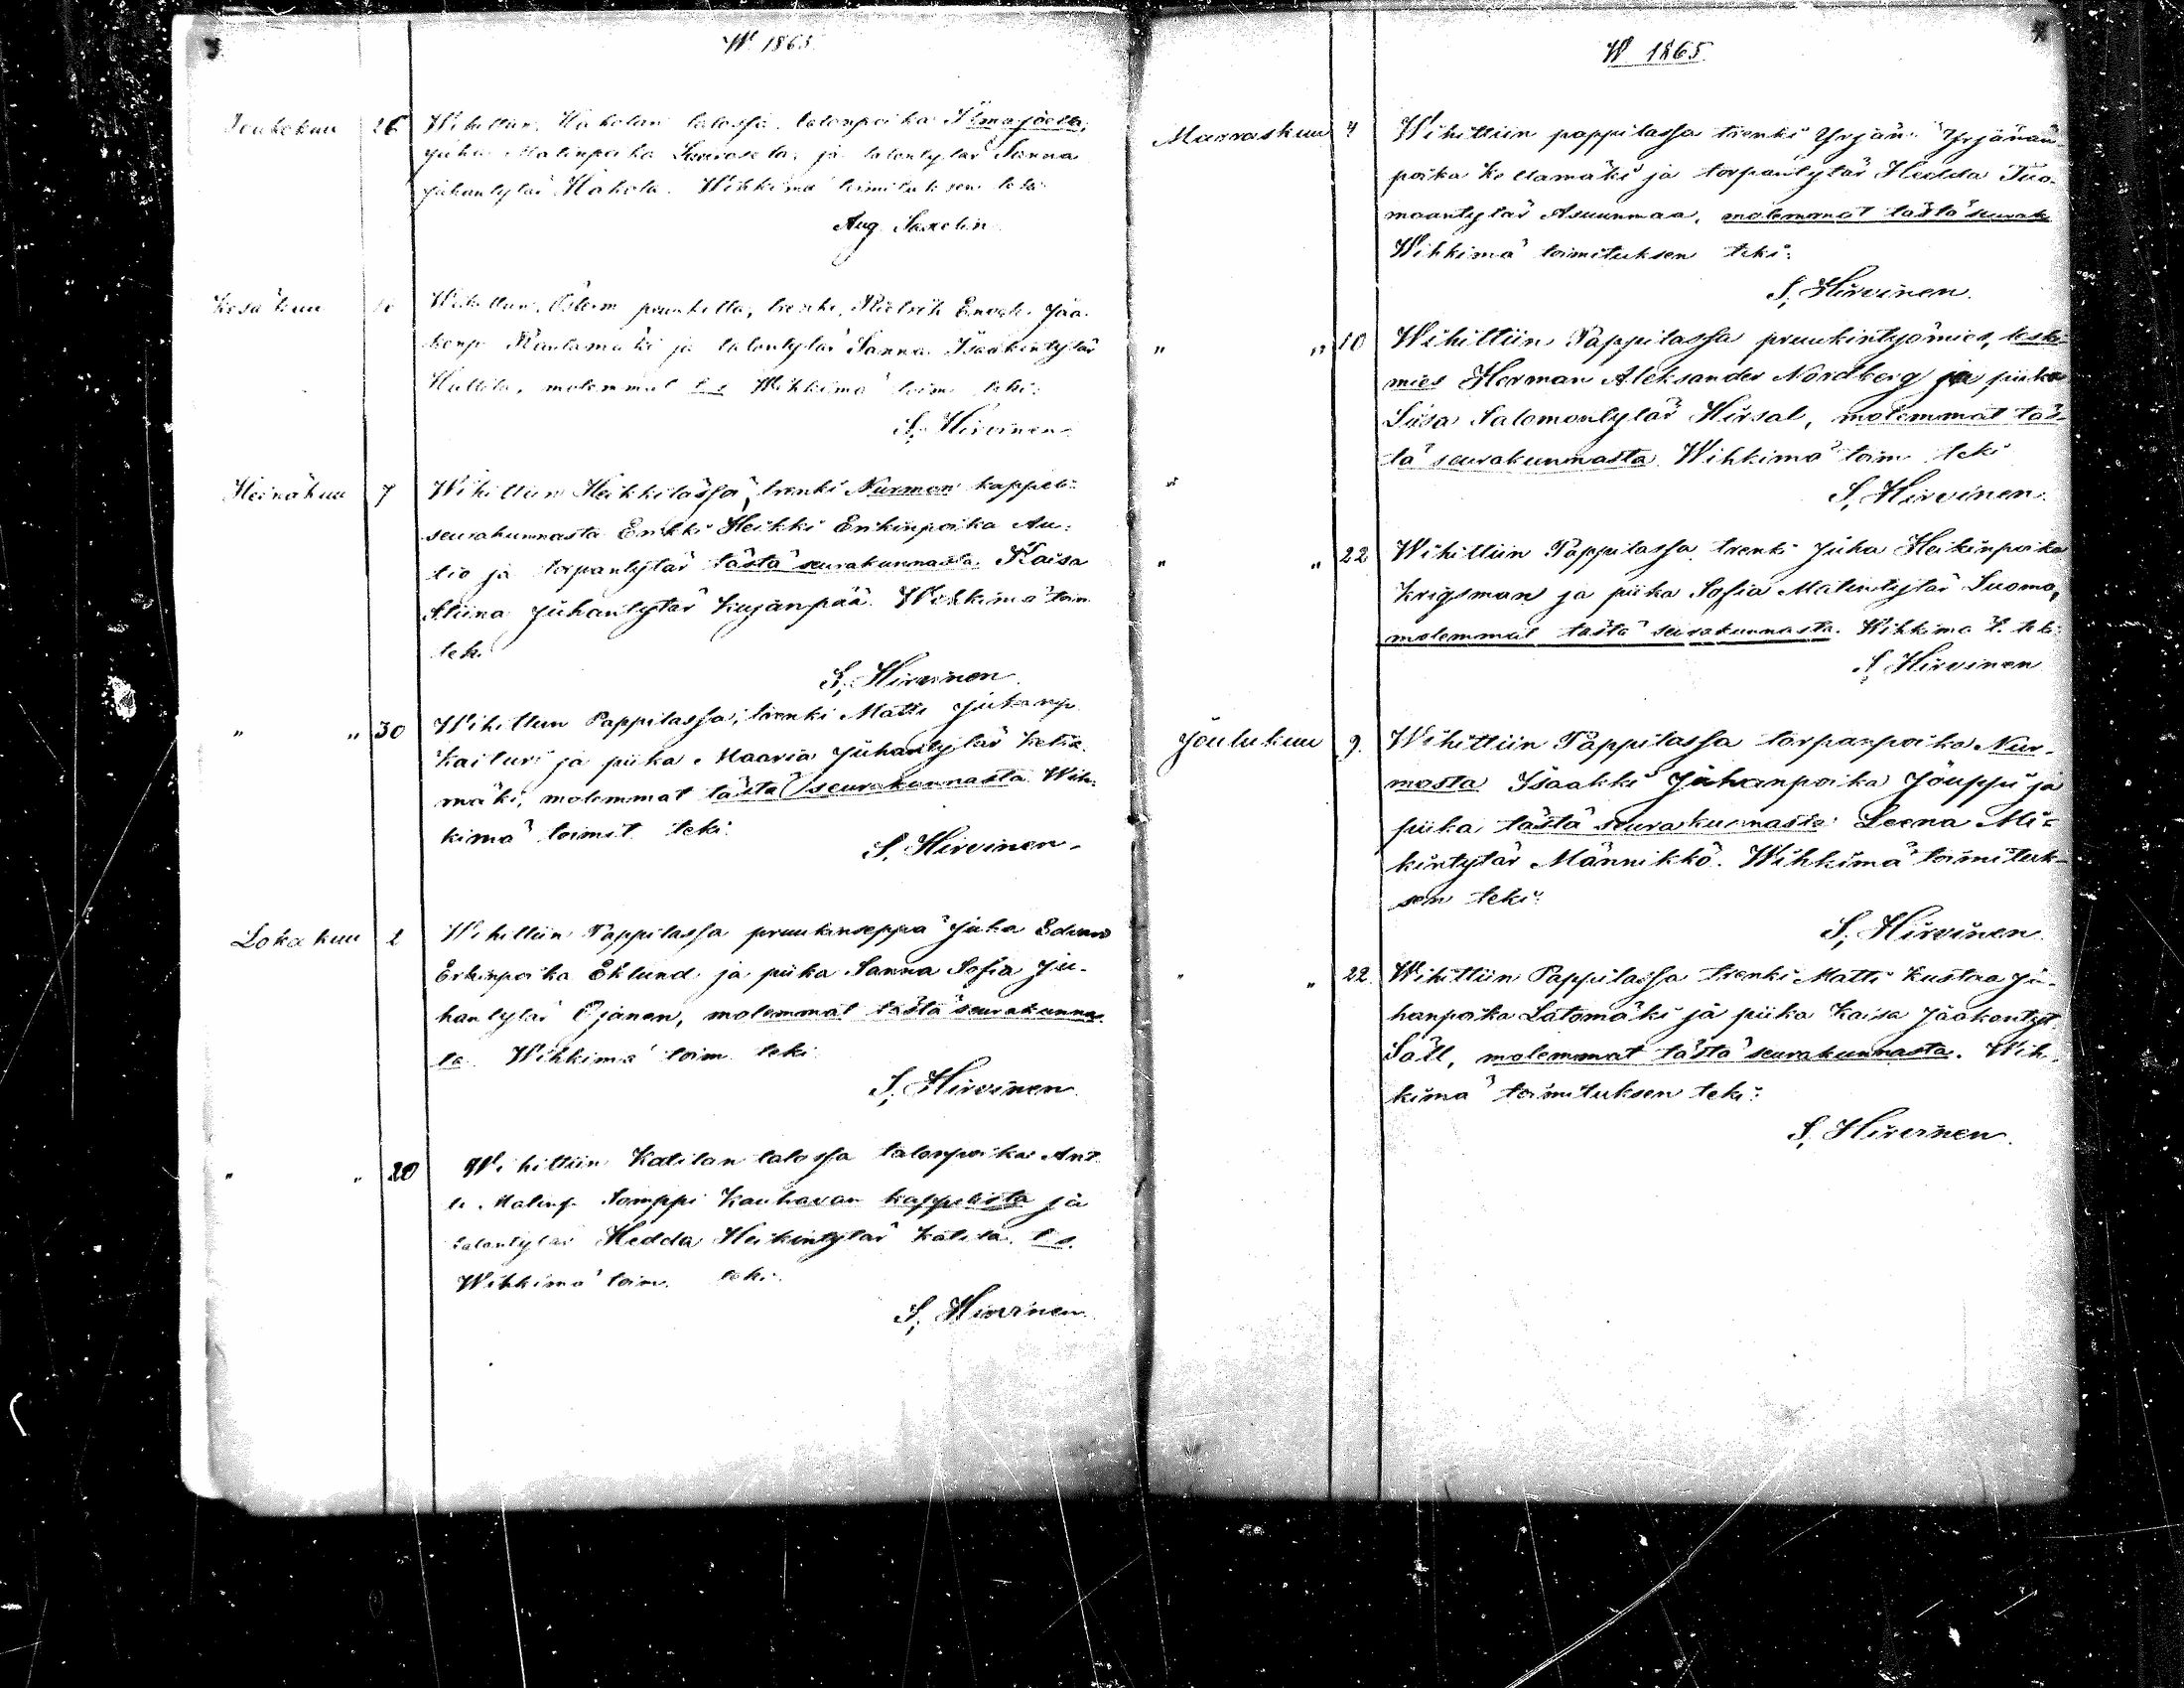 W 1865.
Toukokuu 26 Wihittiin Hakolan talossa, talonpoika Ilmajoella,
Juha Matinpoika ja talontytär Sanna
Juhantytär Hakola. Wihkimä toimituksen teki:
Aug.
Kesäkuu Wihittiin Österm pruukilla, trenki, Enoch Jaa-
konp. Rautamäki ja talontytär Sanna Isaakintytär
molemmat t. s. Wihkimä toim. teki:
S. Hirvinen.
Heinäkuu 7 Wihittiin Heikkilässä, trenki Nurmon kappeli-
seurakunnasta Erikki Heikki Erikinpoika Au-
tio ja torpantytär tästä seurakunnasta Kaisa
Stiina Juhantytär Kujanpää. Wihkimä toim.
teki.
S. Hirvinen.
" " 30 Wihittiin Pappilassa, trenki Matti Juhanp.
Kaituri ja piika Maaria Juhantytär
mäki, molemmat tästä seurakunnasta. Wih-
kimä toimit. teki:
S. Hirvinen.
Lokakuu 2 Wihittiin Pappilassa pruukinseppä Juha Edvard
Erkinpoika Eklund ja piika Sanna Sofia Ju-
hantytär Ojanen, molemmat tästä seurakunnas-
ta. Wihkimä toim. teki
S. Hirvinen.
" " 20 Wihittiin Katilan talossa talonpoika Ant-
ti Matinp. Somppi Kauhavan kappelista ja
talontytär Hedda Heikintytär Katila. t. s.
Wihkimä toim. teki.
S. Hirvinen.
W. 1865.
Marraskuu 4 Wihittiin pappilassa trenki Yrjän Yrjänän-
poika Koltamäki ja torpantytär Hedda Tuo-
maantytär Asuunmaa, molemmat tästä seurak.
Wihkimä toimituksen teki:
S. Hirvinen.
" " 10 Wihittiin Pappilassa pruukintyömies, leski-
mies Herman Aleksander Nordberg ja piika
Liisa Salomontytär Hirsal, molemmat täs-
tä seurakunnasta. Wihkimä toim. teki
S. Hirvinen.
" " 22 Wihittiin Pappilassa trenki Juha Heikinpoika
Krigsman ja piika Sofia Matintytär Luoma,
molemmat tästä seurakunnasta. Wihkimä t. teki:
S. Hirvinen
Joulukuu 9. Wihittiin Pappilassa torpanpoika Nur-
mosta Isaakki Juhanpoika Jouppi ja
piika tästä seurakunnasta Leena Mi-
kintytär Männikkö. Wihkimä toimituk-
sen teki:
S. Hirvinen.
" " 22. Wihittiin Pappilassa trenki Matti Kustaa Ju-
hanpoika Latomäki ja piika Kaisa Jaakontyt.
Säll, molemmat tästä seurakunnasta. Wih-
kimä toimituksen teki:
S. Hirvinen.